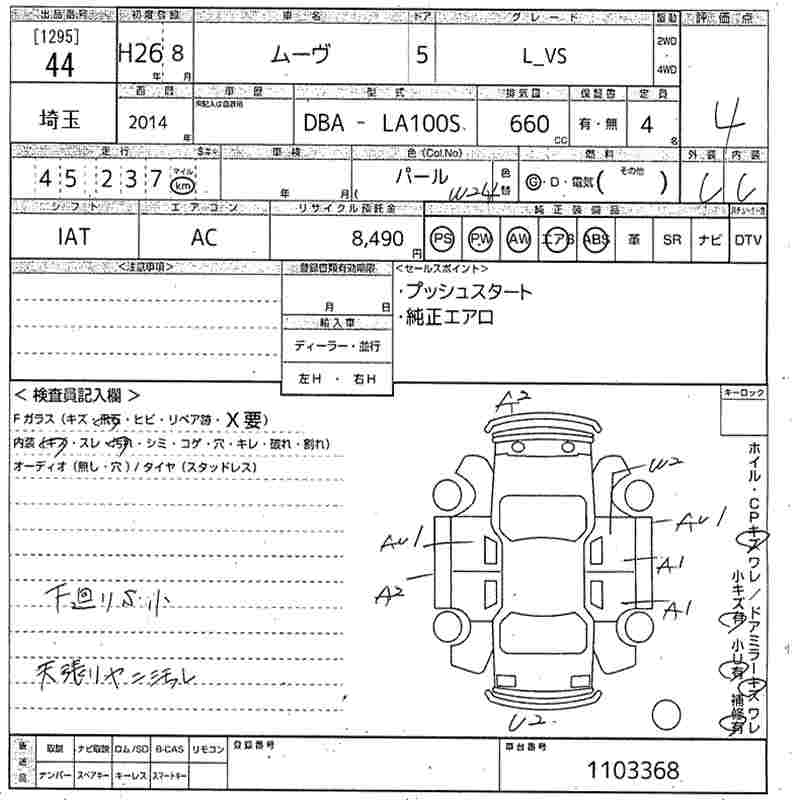 出品番号 初度登録 車名 ドア グレード 駆動 評価点
[1295] 44 H26 8 年 月 ムーヴ 5 L_VS 2WD ・ 4WD 4
西暦 車歴 型式 排気量 保証書 定員
埼玉 2014 年 DBA - LA100S 660 CC 有・無 4 名
走行 車検 色(Col.No) 燃料 外装 内装
45 237 マイル km 年 月 パール W24 色替 G・D・電気( その他 ) C C
シフト エアコン リサイクル預託金 純正装備品
IAT AC 8,490 円 PS PW AW エアB ABS 革 SR ナビ DTV
<注意事項> 登録書類有効期限 <セールスポイント>
月 日 ・プッシュスタート
輸入車 ・純正エアロ
ディーラー・並行
左H ・ 右H
キーロック
< 検査員記入欄 >
Fガラス (キズ・飛石・ヒビ・リペア跡・X要)
内装 (キズ・スレ・汚れ・シミ・コゲ・穴・キレ・破れ・割れ)
オーディオ (無し・穴) / タイヤ (スタッドレス)
下廻りS小
天張りヤニ汚れ
A2
W2
AU1 AU1
A1
A2 A1
U2
ホイル・CPキズワレ/ドアミラーキズワレ
小キズ有 小U有 補修有
後送品 取説 ナビ取説 ロム/SD B-CAS リモコン 登録番号 車台番号
ナンバー スペアキー キーレス スマートキー 1103368